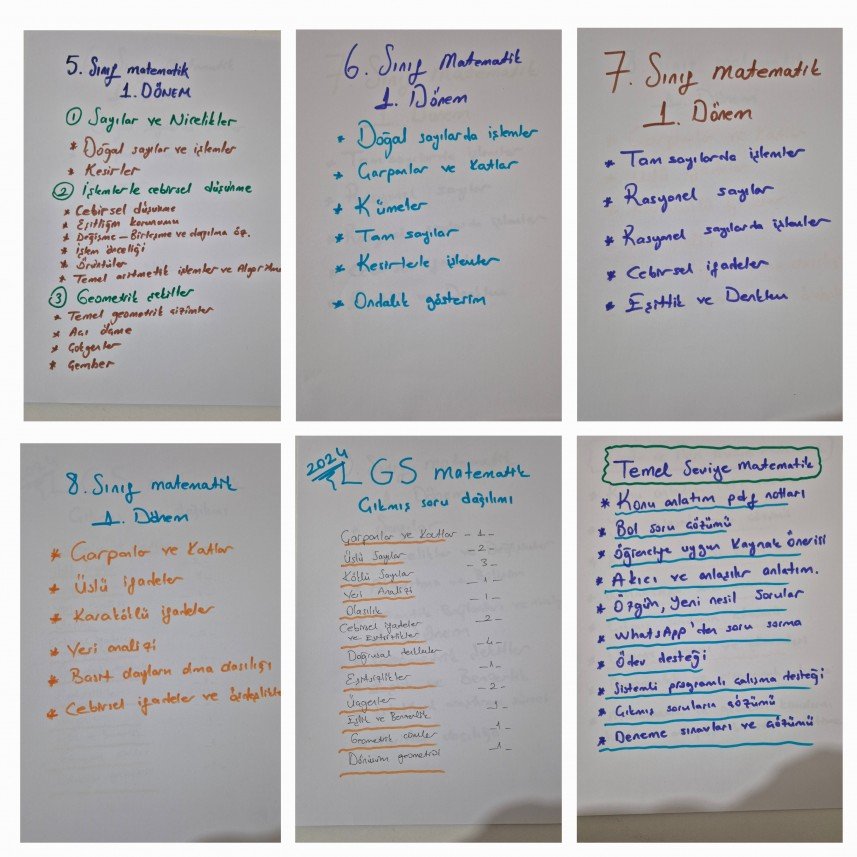 5. Sınıf matematik
1. DÖNEM
① Sayılar ve Nicelikler
* Doğal sayılar ve işlemler
* Kesirler
② İşlemlerle cebirsel düşünme
* Cebirsel düşünme
* Eşitliğin korunumu
* Değişme - Birleşme ve dağılma öz.
* İşlem önceliği
* Örüntüler
* Temel aritmetik işlemler ve Algoritma
③ Geometrik şekiller
* Temel geometrik çizimler
* Açı ölçme
* Çokgenler
* Çember
6. Sınıf Matematik
1. Dönem
* Doğal sayılarda işlemler
* Çarpanlar ve Katlar
* Kümeler
* Tam sayılar
* Kesirlerle işlemler
* Ondalık gösterim
7. Sınıf matematik
1. Dönem
* Tam sayılarda işlemler
* Rasyonel sayılar
* Rasyonel sayılarda işlemler
* Cebirsel ifadeler
* Eşitlik ve Denklem
8. Sınıf matematik
1. Dönem
* Çarpanlar ve Katlar
* Üslü ifadeler
* Kareköklü ifadeler
* Veri analizi
* Basit olayların olma olasılığı
* Cebirsel ifadeler ve özdeşlikler
2024
LGS matematik
Çıkmış soru dağılımı
Çarpanlar ve Katlar - 1 -
Üslü Sayılar - 2 -
Köklü Sayılar - 3 -
Veri Analizi - 1 -
Olasılık - 1 -
Cebirsel ifadeler
ve Eşitlikler - 2 -
Doğrusal denklemler - 4 -
Eşitsizlikler - 1 -
Üçgenler - 2 -
Eşlik ve Benzerlik - 1 -
Geometrik cisimler - 1 -
Dönüşüm geometrisi - 1 -
Temel Seviye matematik
* Konu anlatım pdf notları
* Bol soru çözümü
* Öğrenciye uygun Kaynak Önerisi
* Akıcı ve anlaşılır anlatım.
* Özgün, Yeni nesil Sorular
* WhatsApp'den soru sorma
* Ödev desteği
* Sistemli programlı çalışma desteği
* Çıkmış soruların çözümü
* Deneme sınavları ve Çözümü